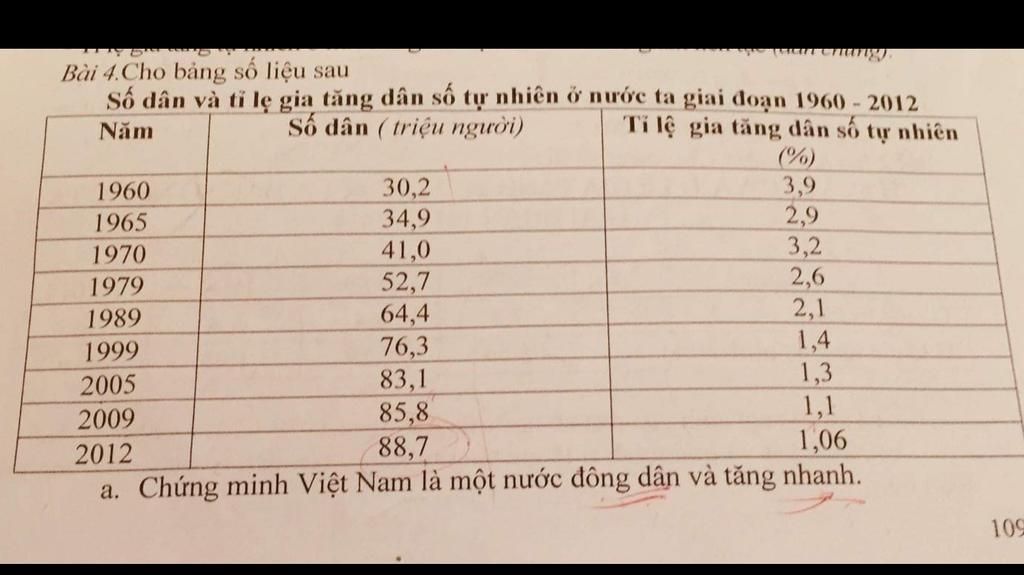 Bài 4.Cho bảng số liệu sau
Số dân và tỉ lẹ gia tăng dân số tự nhiên ở nước ta giai đoạn 1960 - 2012
Năm Số dân ( triệu người) Tỉ lệ gia tăng dân số tự nhiên
(%)
1960 30,2 3,9
1965 34,9 2,9
1970 41,0 3,2
1979 52,7 2,6
1989 64,4 2,1
1999 76,3 1,4
2005 83,1 1,3
2009 85,8 1,1
2012 88,7 1,06
a. Chứng minh Việt Nam là một nước đông dân và tăng nhanh.
109